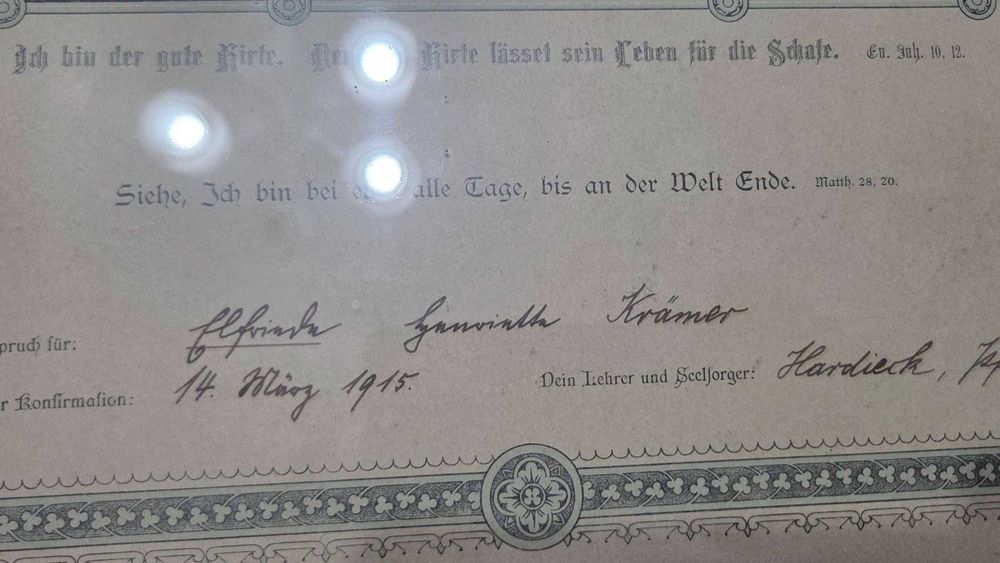 Ich bin der gute Hirte. Hirte lässet sein Leben für die Schafe. Ev. Joh. 10, 12.
Siehe, Ich bin bei alle Tage, bis an der Welt Ende. Matth. 28, 20.
pruch für: Elfriede Henriette Krämer
r Konfirmation: 14. März 1915. Dein Lehrer und Seelsorger: Hardieck,